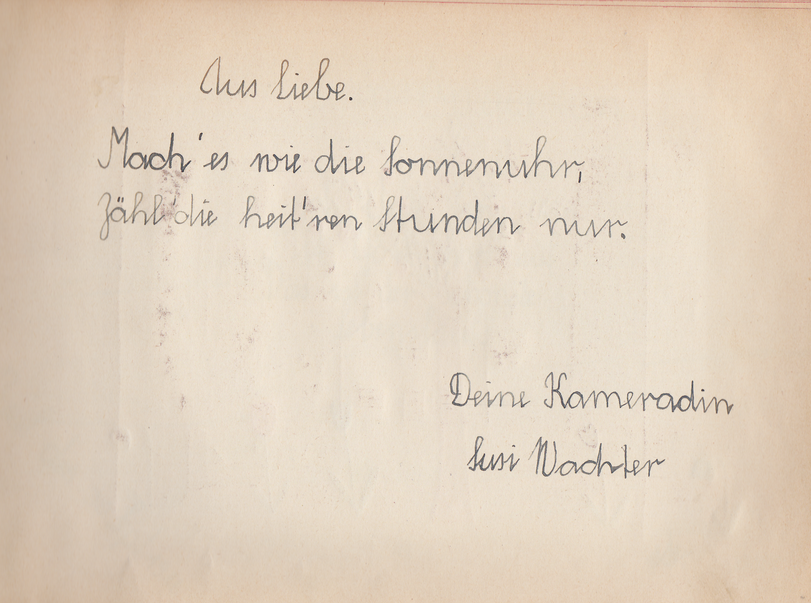 Aus Liebe.
Mach' es wie die Sonnenuhr,
Zähl' die heit'ren Stunden nur.
Deine Kameradin
Susi Wachter